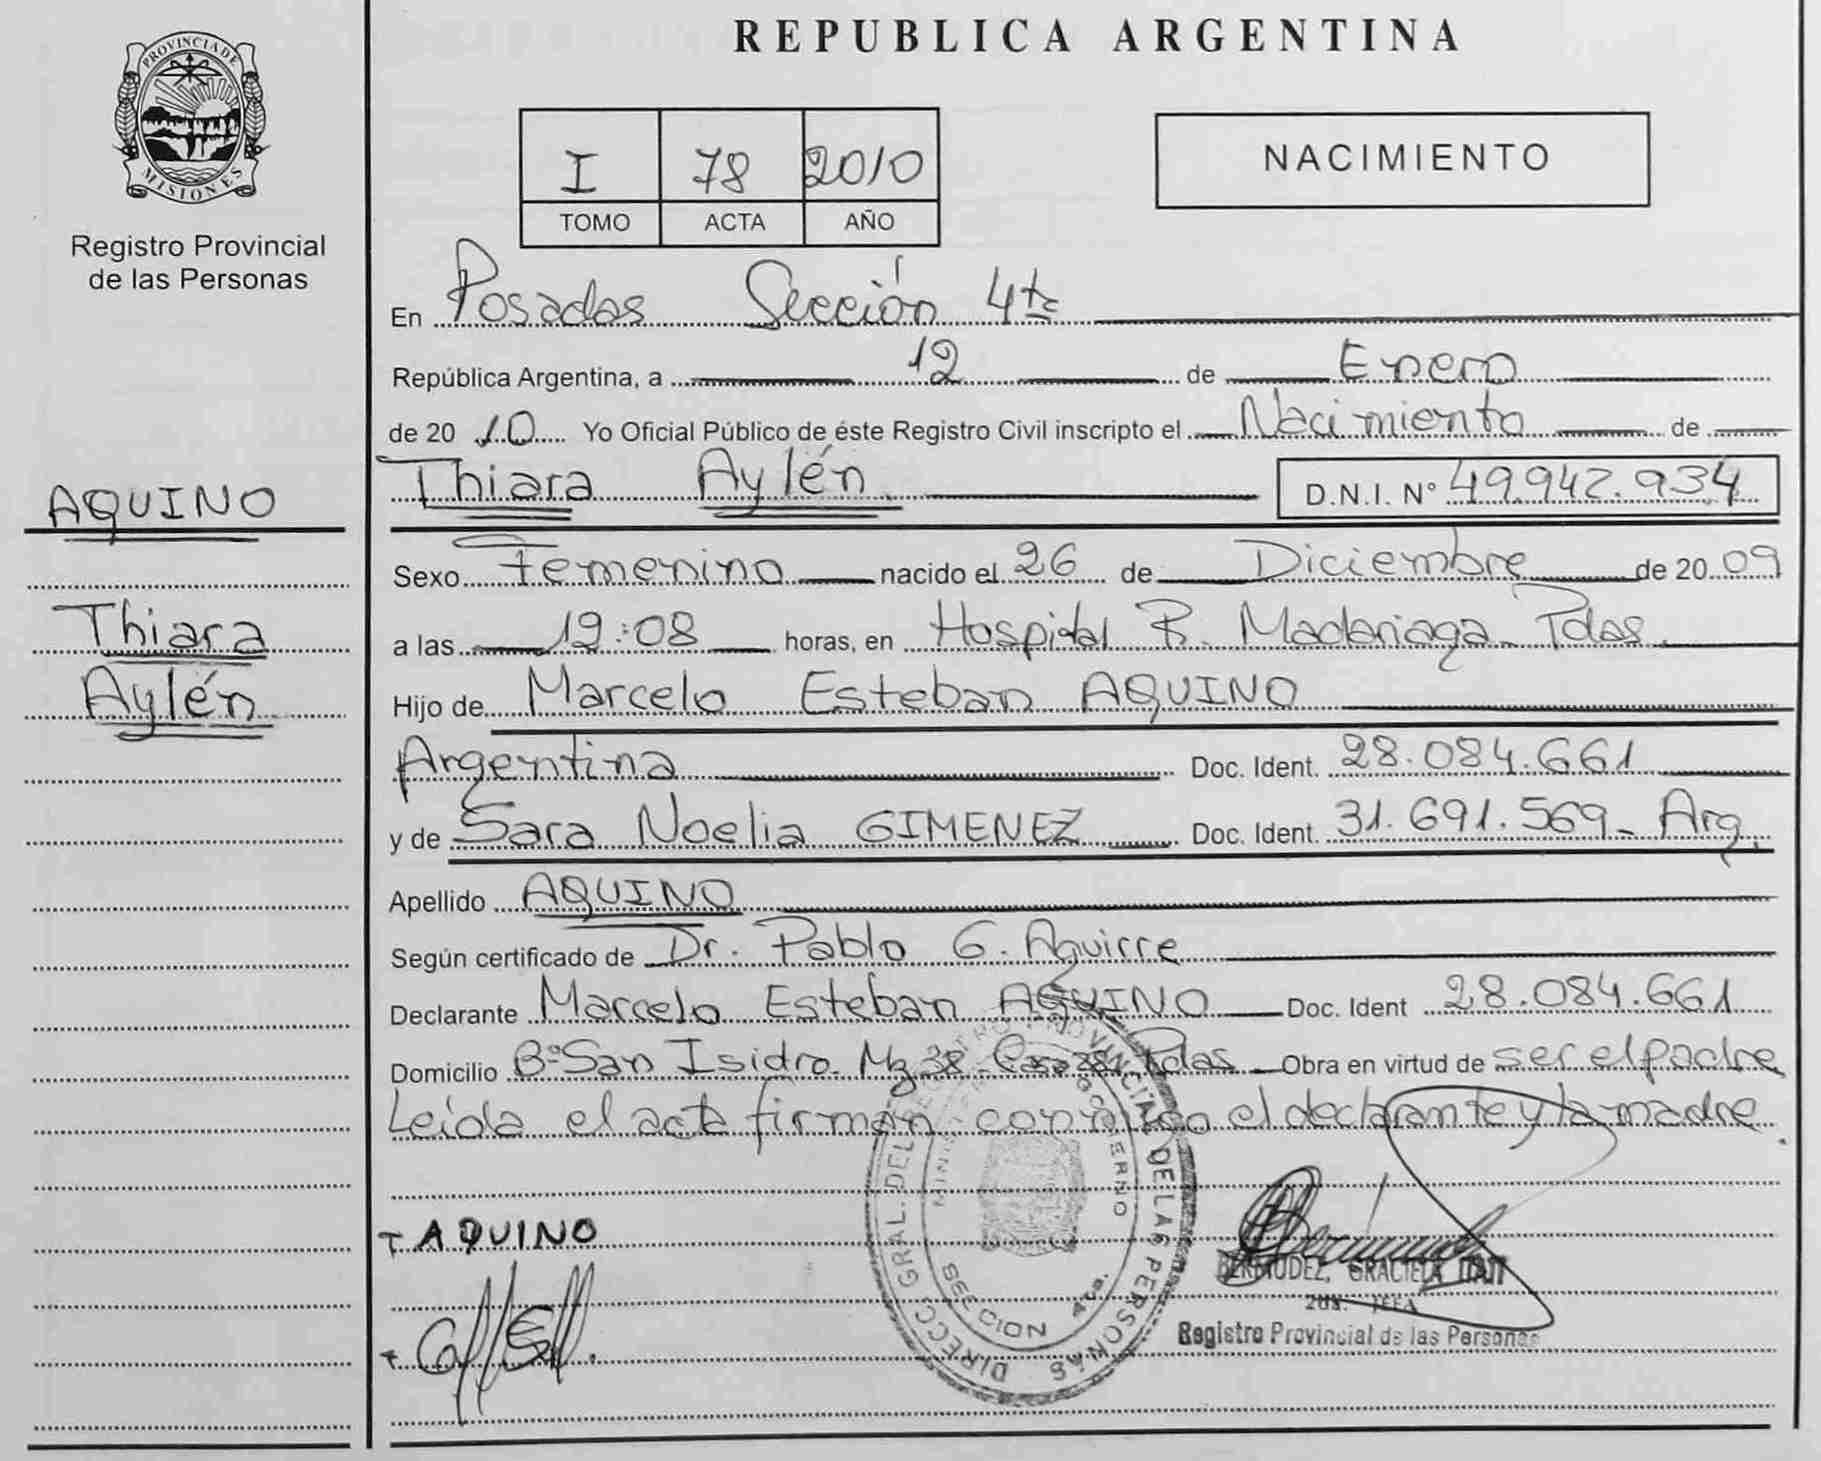 REPUBLICA ARGENTINA
PROVINCIA DE
MISIONES
Registro Provincial
de las Personas
I 78 2010
TOMO ACTA AÑO
NACIMIENTO
En Posadas Sección 4ta
República Argentina, a 12 de Enero
de 2010 Yo Oficial Público de éste Registro Civil inscripto el Nacimiento de
Thiara Aylén D.N.I. N° 49.942.934
AQUINO
Thiara
Aylén
Sexo Femenino nacido el 26 de Diciembre de 2009
a las 19:08 horas, en Hospital R. Madariaga Pdas.
Hijo de Marcelo Esteban AQUINO
Argentina Doc. Ident. 28.084.661
y de Sara Noelia GIMENEZ Doc. Ident. 31.691.569 - Arg.
Apellido AQUINO
Según certificado de Dr. Pablo G. Aguirre
Declarante Marcelo Esteban AQUINO Doc. Ident 28.084.661
Domicilio B° San Isidro Mz 38 Casa 28 Pdas Obra en virtud de ser el padre
Leída el acta firman conmigo el declarante y la madre.
AQUINO
DIRECC. GRAL. DEL REGISTRO PROVINCIAL DE LAS PERSONAS
SECCION 4ta.
BERMUDEZ, GRACIELA
JEFA
Registro Provincial de las Personas